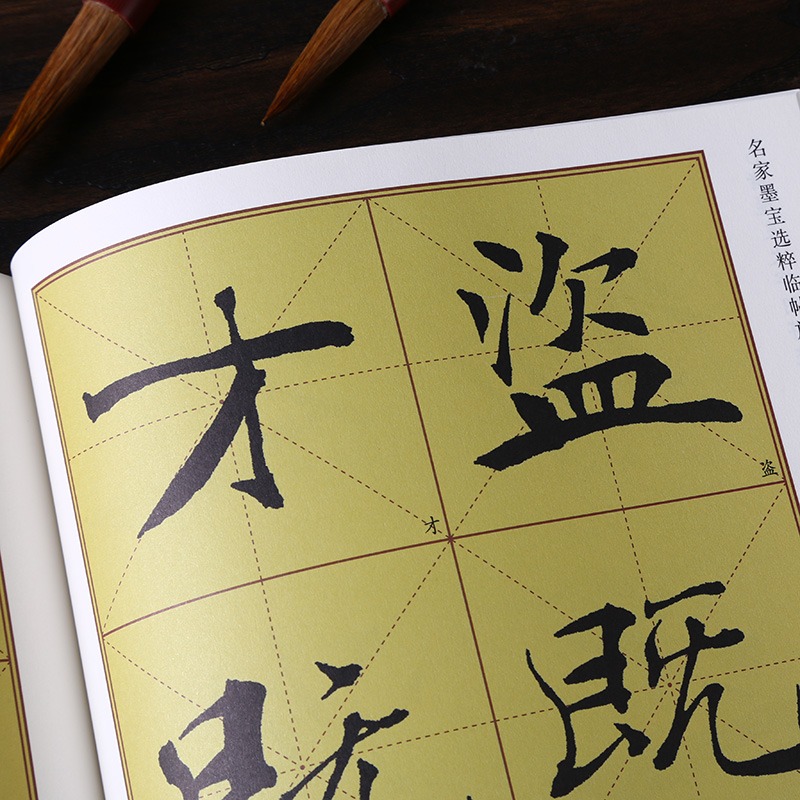 名家墨宝选粹临
盗
盗
既
才
才